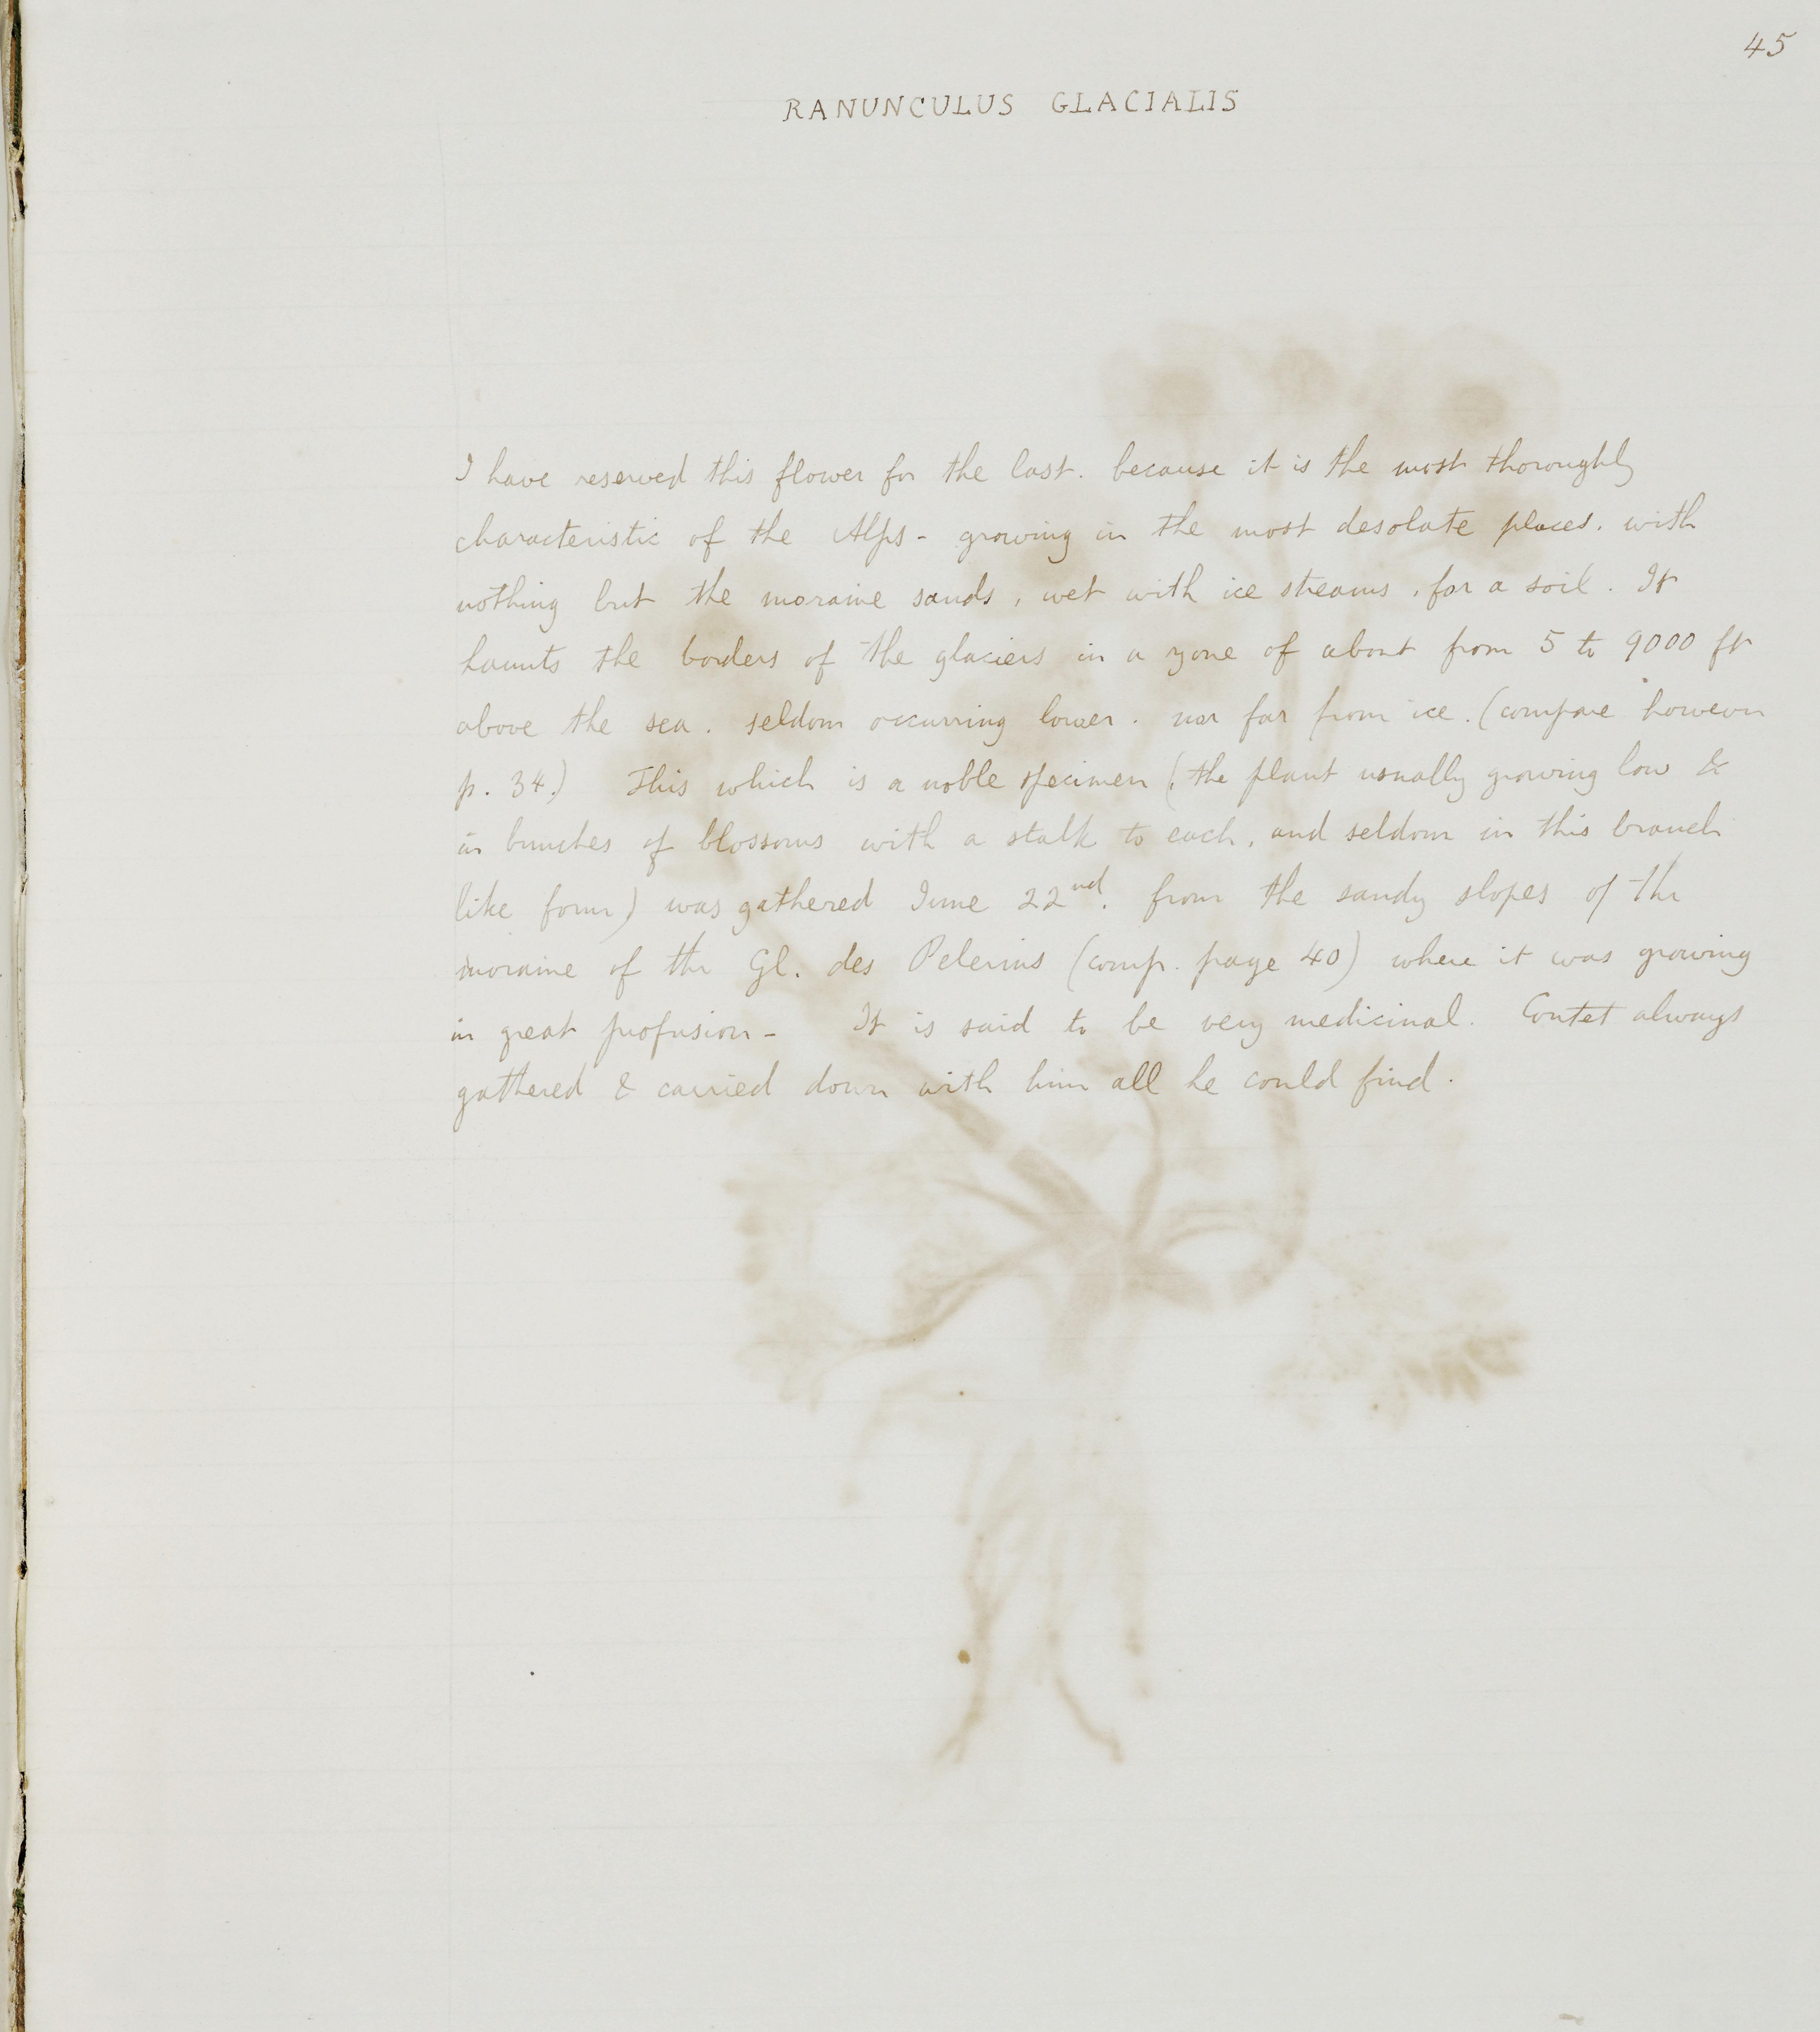 45
RANUNCULUS GLACIALIS
I have reserved this flower for the last. because it is the most thoroughly
characteristic of the Alps - growing in the most desolate places. with
nothing but the moraine sands, wet with ice streams, for a soil. It
haunts the borders of the glaciers in a zone of about from 5 to 9000 ft
above the sea. seldom occurring lower. nor far from ice. (compare however
p. 34.) This which is a noble specimen (the plant usually growing low &
in bunches of blossoms with a stalk to each, and seldom in this branch
like form) was gathered June 22nd. from the sandy slopes of the
moraine of the Gl. des Pelerins (comp. page 40) where it was growing
in great profusion - It is said to be very medicinal. Coutet always
gathered & carried down with him all he could find.